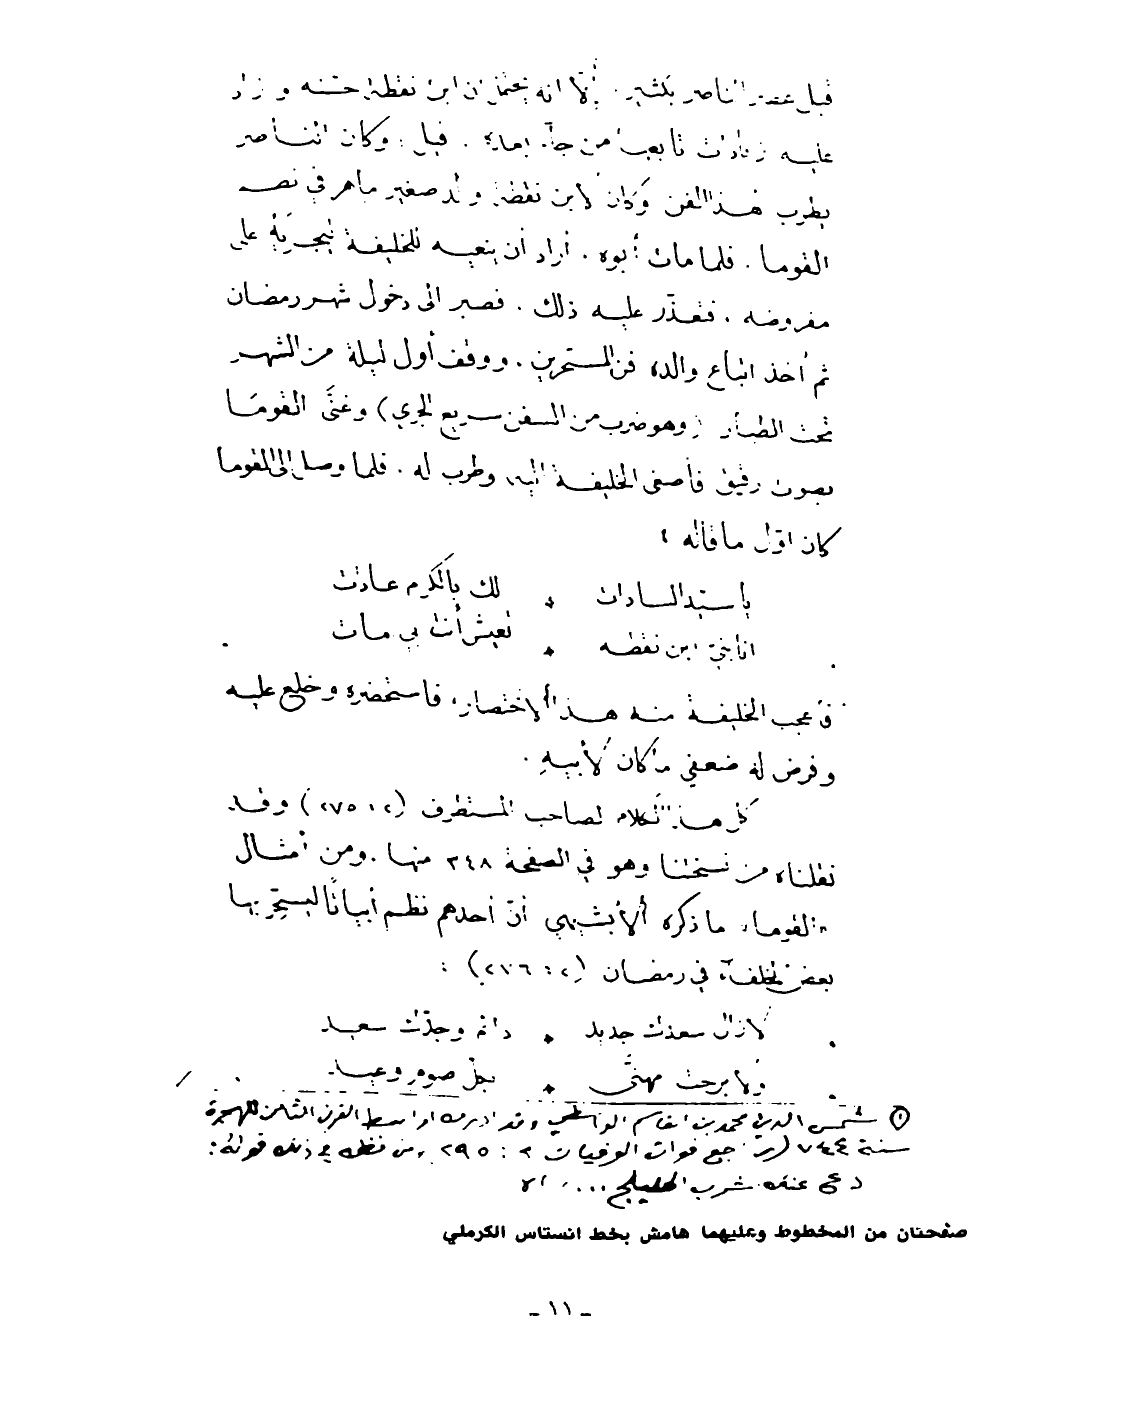 قبل عصر الناصر بكثير. إلّا انه يحتمل ان ابن نقطة حسّنه و زاد
عليه زيادات تابعه من جآء بعده. قيل: وكان الناصر
يطرب لهذا الفن وكان لابن نقطة ولد صغير ماهر في نصـ
القوما. فلما مات أبوه. أراد أن ينعيه للخليفة ليجريَهُ على
مفروضه. فتعذّر عليه ذلك. فصبر الى دخول شهر رمضان
ثم أخذ اتباع والده من المسحّرين. ووقف أول ليلة من الشهر
تحت الطيار (وهو ضرب من السفن سريع الجري) وغنَّى القومَا
بصوت رقيق فأصغى الخليفة اليه وطرب له. فلما وصل إلى القوما
كان اوّل ما قاله :
يا سيّد السادات * لك بالكرم عادات
انا بنيّ ابن نقطه * تعيش أنت بي مات
فأعجب الخليفة منه هذا الاختصار، فاستحضره وخلع عليه
وفرض له ضعفي ما كان لأبيهِ.
كل هذا الكلام لصاحب المستطرف (٢: ٢٧٥) وقد
نقلناه من نسختنا وهو في الصفحة ٣٤٨ منها. ومن أمثال
«القوما» ما ذكره ألأبشيهي أنّ أحدهم نظم أبياتًا ليسحّر بها
بعض الخلفآء في رمضان (٢: ٢٧٦) :
لا زال سعدك جديد * دائم وجدّك سعيد
ولا برحت مهنَّى * بكل صوم وعيد
(١) شمس الدين محمد بن القاسم الواسطي وقد ادركه اواسط القرن الثامن للهجرة
سنة ٧٤٤ (راجع فوات الوفيات ٢ : ٢٩٥ ومن نظمه في ذلك قوله:
دع عنك شرب الهليلج .... الا
صفحتان من المخطوط وعليهما هامش بخط انستاس الكرملي
ـ ١١ ـ